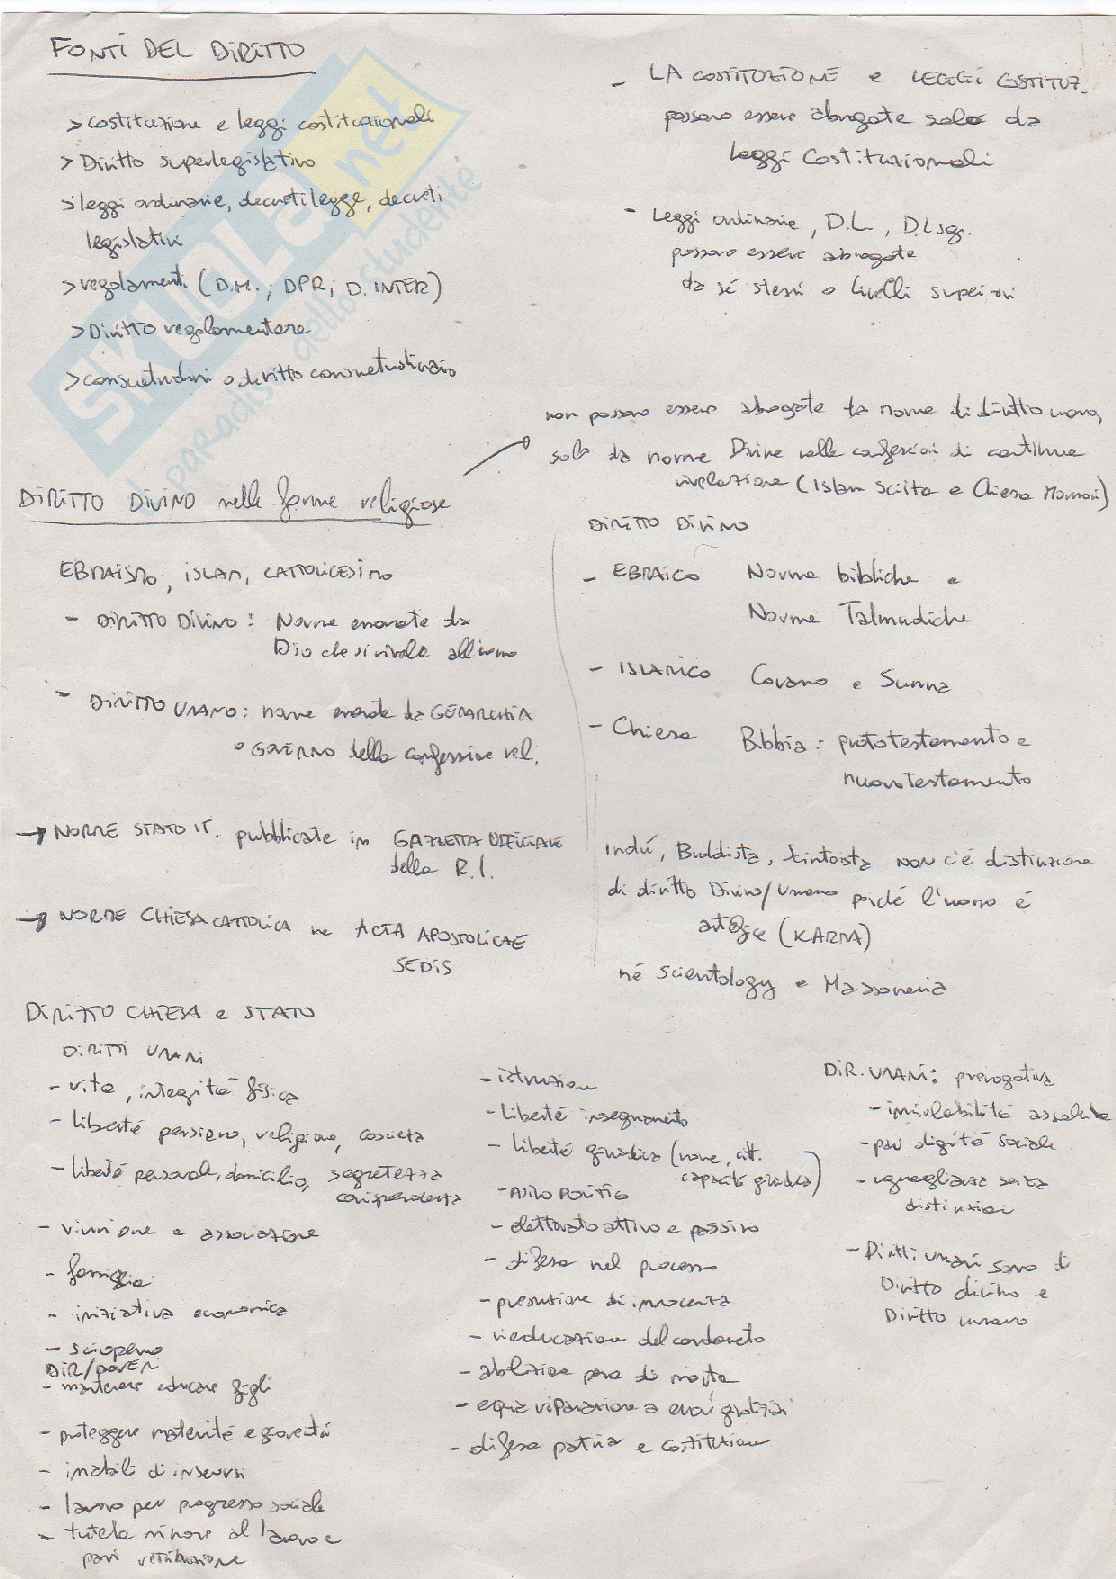 FONTI DEL DIRITTO
> costituzione e leggi costituzionali
> Diritto superlegislativo
> leggi ordinarie, decreti legge, decreti
legislativi
> regolamenti (D.M., DPR, D. INTER)
> Diritto regolamentare
> consuetudini o diritto consuetudinario
- LA COSTITUZIONE e LEGGI COSTITUZ.
possono essere abrogate solo da
leggi Costituzionali
- Leggi ordinarie, D.L., D.Lsg.
possono essere abrogate
da sé stessi o livelli superiori
non possono essere abrogate da norme di diritto umano,
solo da norme Divine nelle confessioni di continua
rivelazione (Islam Sciita e Chiesa Mormoni)
DIRITTO DIVINO nelle forme religiose
EBRAISMO, ISLAM, CATTOLICESIMO
- DIRITTO DIVINO: Norme emanate da
Dio che si rivela all'uomo
- DIRITTO UMANO: norme emanate da GERARCHIA
o GOVERNO della confessione rel.
→ NORME STATO IT. pubblicate in GAZZETTA UFFICIALE
della R.I.
→ NORME CHIESA CATTOLICA ne ACTA APOSTOLICAE
SEDIS
DIRITTO DIVINO
- EBRAICO Norme bibliche e
Norme Talmudiche
- ISLAMICO Corano e Sunna
- Chiesa Bibbia: prototestamento e
nuovo Testamento
Indú, Buddista, Scintoista NON c'é distinzione
di diritto Divino/Umano poiché l'uomo é
artefice (KARMA)
né Scientology e Massoneria
DIRITTO CHIESA e STATO
DIRITTI UMANI
- vita, integrità fisica
- liberté pensiero, religione, coscienza
- liberté personale, domicilio, segretezza
corrispondenza
- riunione e associazione
- famiglia
- iniziativa economica
- sciopero
DIR/DOVERI
- mantenere educare figli
- proteggere maternité e gioventú
- inabili di inserirsi
- lavoro per progresso sociale
- tutela minore al lavoro e
pari retribuzione
- istruzione
- liberté insegnamento
- liberté giuridica (nome, citt.
capacité giuridica)
- ASILO POLITICO
- elettorato attivo e passivo
- difesa nel processo
- presunzione di innocenza
- rieducazione del condannato
- abolizione pena di morte
- equa riparazione a errori giudiziari
- difesa patria e costituzione
DIR. UMANI: prerogativa
- inviolabilità assoluta
- pari dignità sociale
- uguaglianza senza
distinzioni
- Diritti umani sono di
Diritto divino e
Diritto umano
SKUOLA.net
il paradiso dello studente